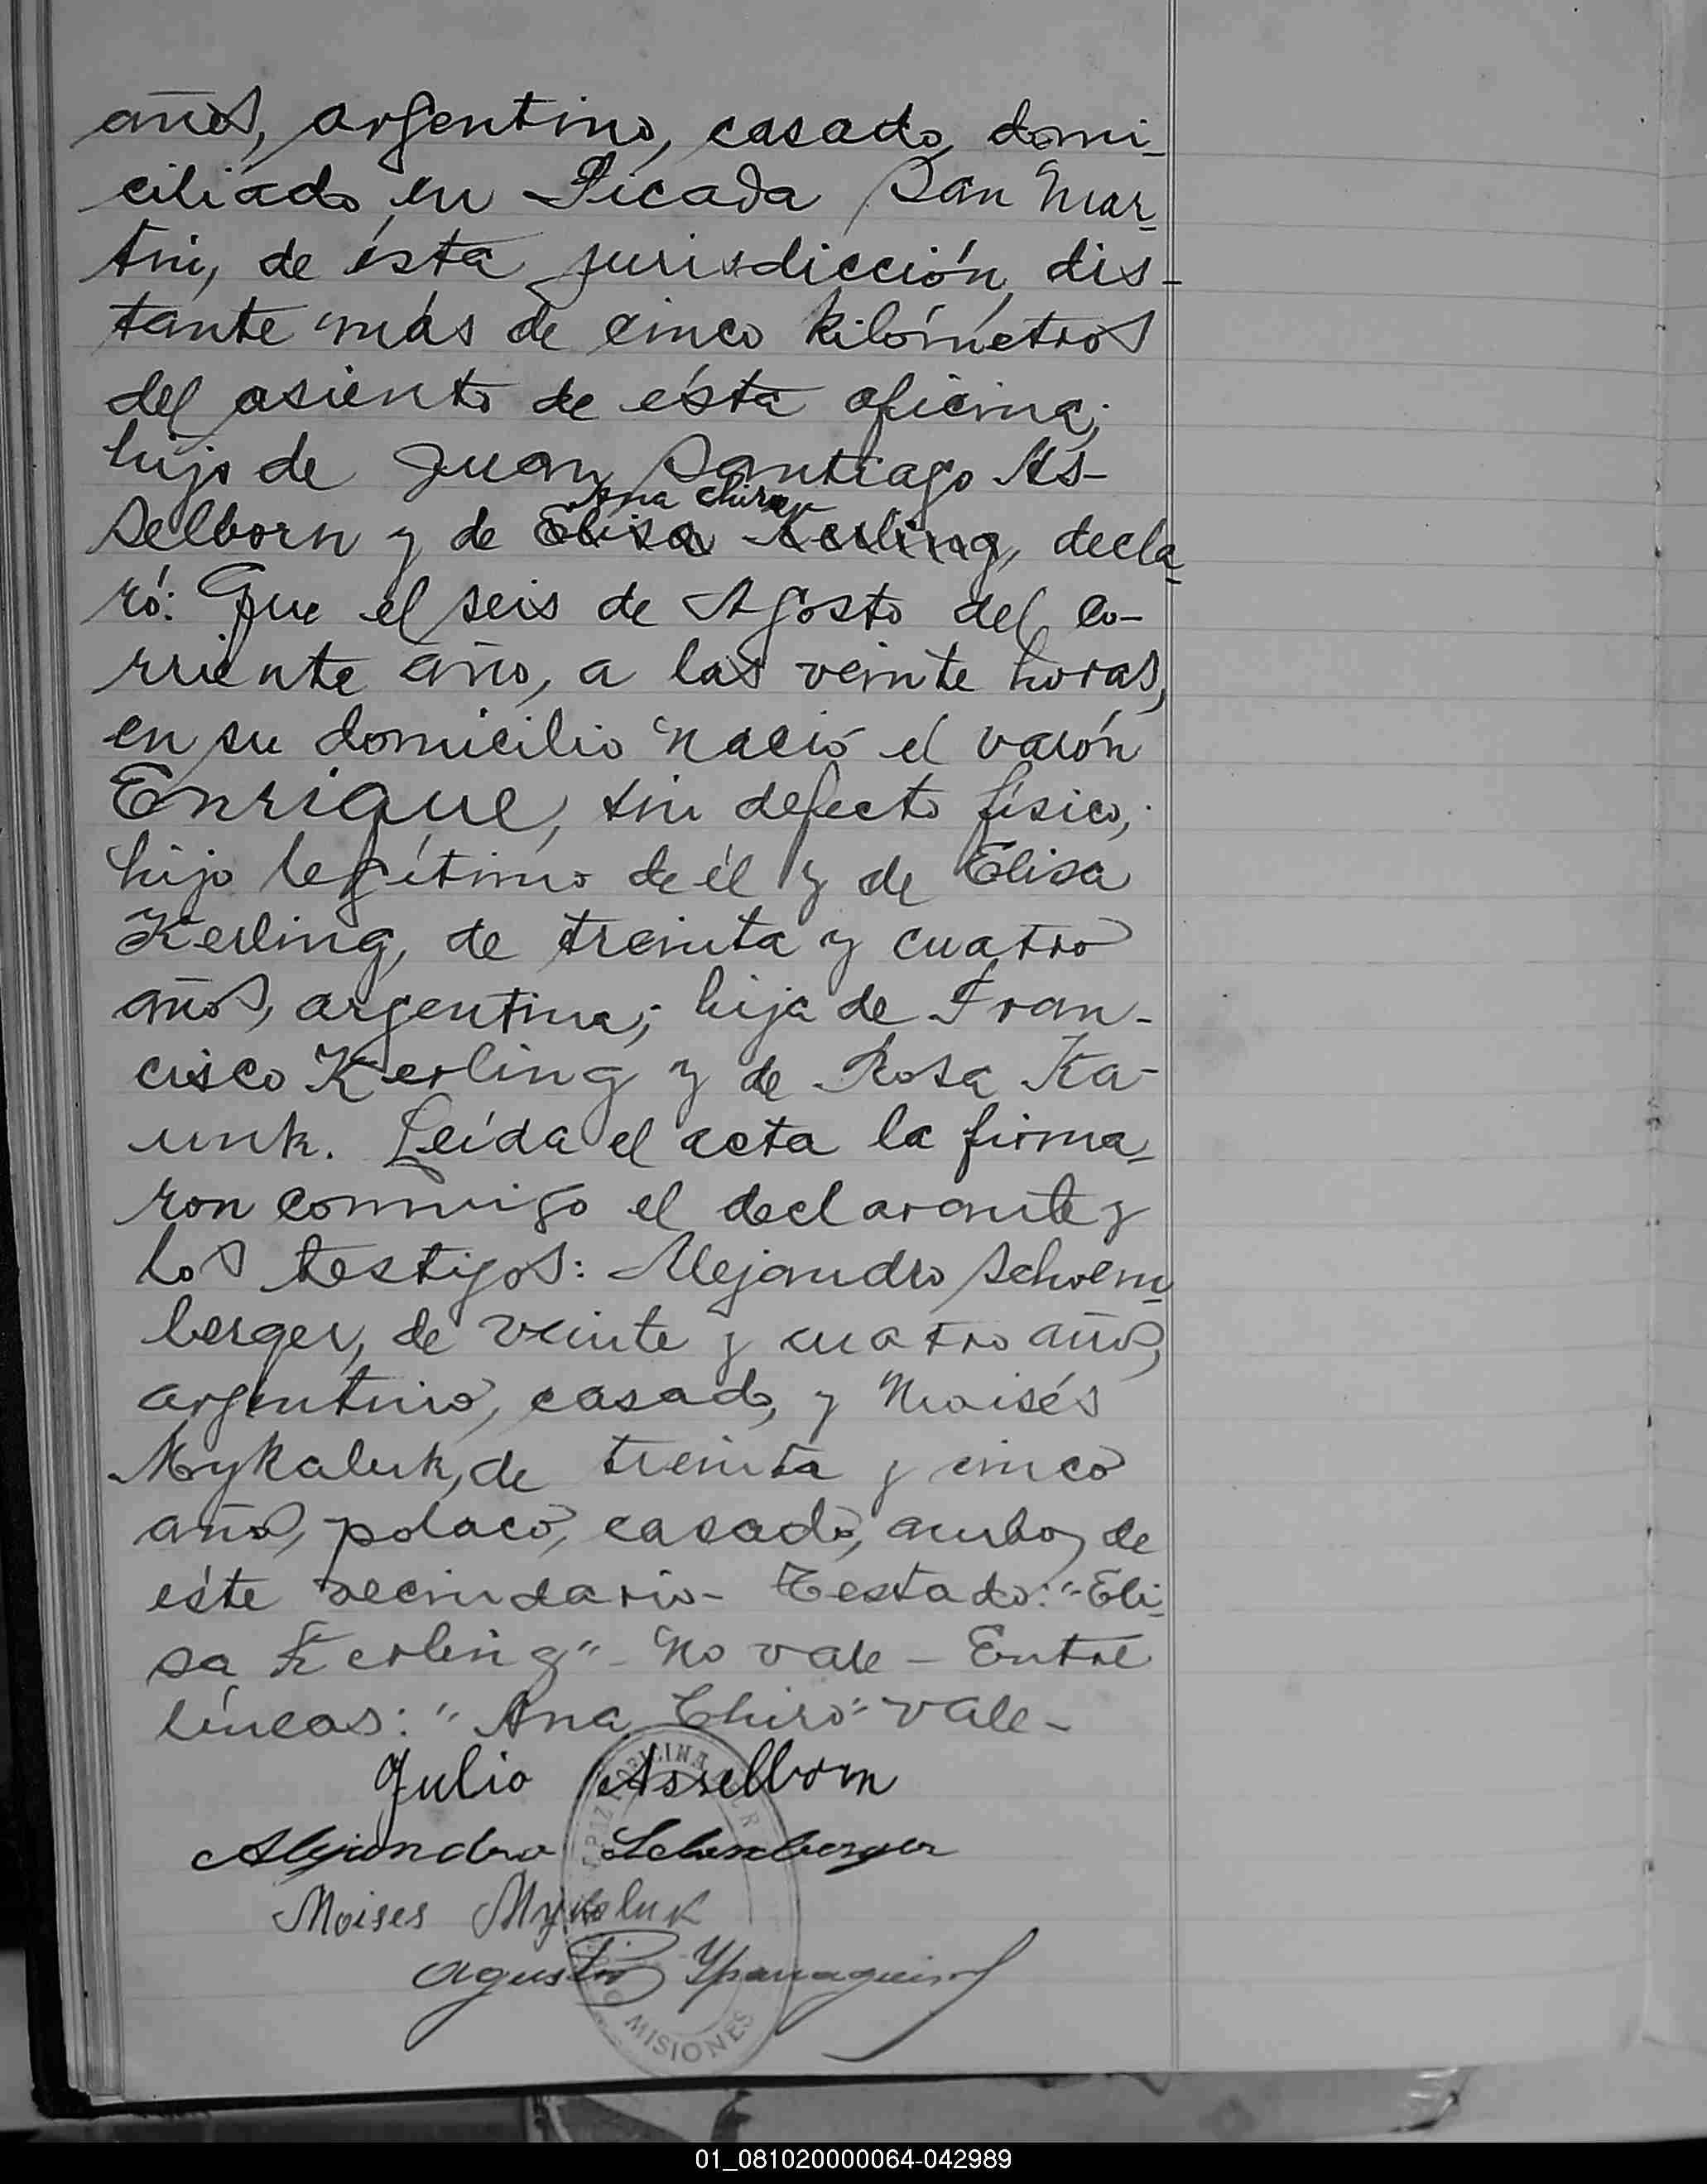 años, argentino, casado, domi-
ciliado en Picada San Mar-
tin, de ésta jurisdicción, dis-
tante más de cinco kilómetros
del asiento de ésta oficina;
hijo de Juan Santiago As-
Ana Chiro
selborn y de Elisa Kerling, decla-
ró: Que el seis de Agosto del co-
rriente año, a las veinte horas,
en su domicilio nació el varón
Enrique, sin defecto físico,
hijo legítimo de él y de Elisa
Kerling, de treinta y cuatro
años, argentina; hija de Fran-
cisco Kerling y de Rosa Ka-
unk. Leída el acta la firma-
ron conmigo el declarante y
los testigos: Alejandro Schoem-
berger, de veinte y cuatro años,
argentino, casado, y Moisés
Mykaluk, de treinta y cinco
años, polaco, casado, ambos de
éste vecindario- Testado: "Eli-
sa Kerling" - No vale - Entre
líneas: "Ana Chiro" vale-
Julio Asselborn
Alejandro
Moises Mykaluk
Agustin
OFICINA
MISIONES
01_081020000064-042989